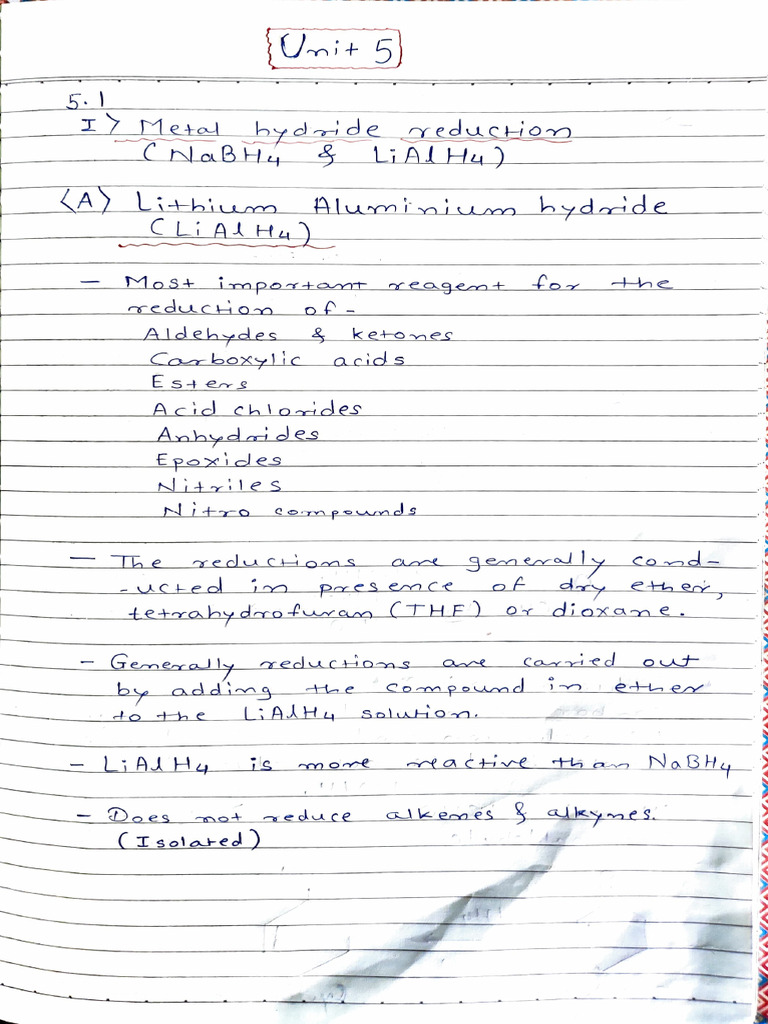 Unit 5
5.1
I> Metal hydride reduction
(NaBH4 & LiAlH4)
<A> Lithium Aluminium hydride
(LiAlH4)
- Most important reagent for the
reduction of -
Aldehydes & ketones
Carboxylic acids
Esters
Acid chlorides
Anhydrides
Epoxides
Nitriles
Nitro compounds
- The reductions are generally cond-
-ucted in presence of dry ether,
tetrahydrofuran (THF) or dioxane.
- Generally reductions are carried out
by adding the compound in ether
to the LiAlH4 solution.
- LiAlH4 is more reactive than NaBH4
- Does not reduce alkenes & alkynes.
(Isolated)